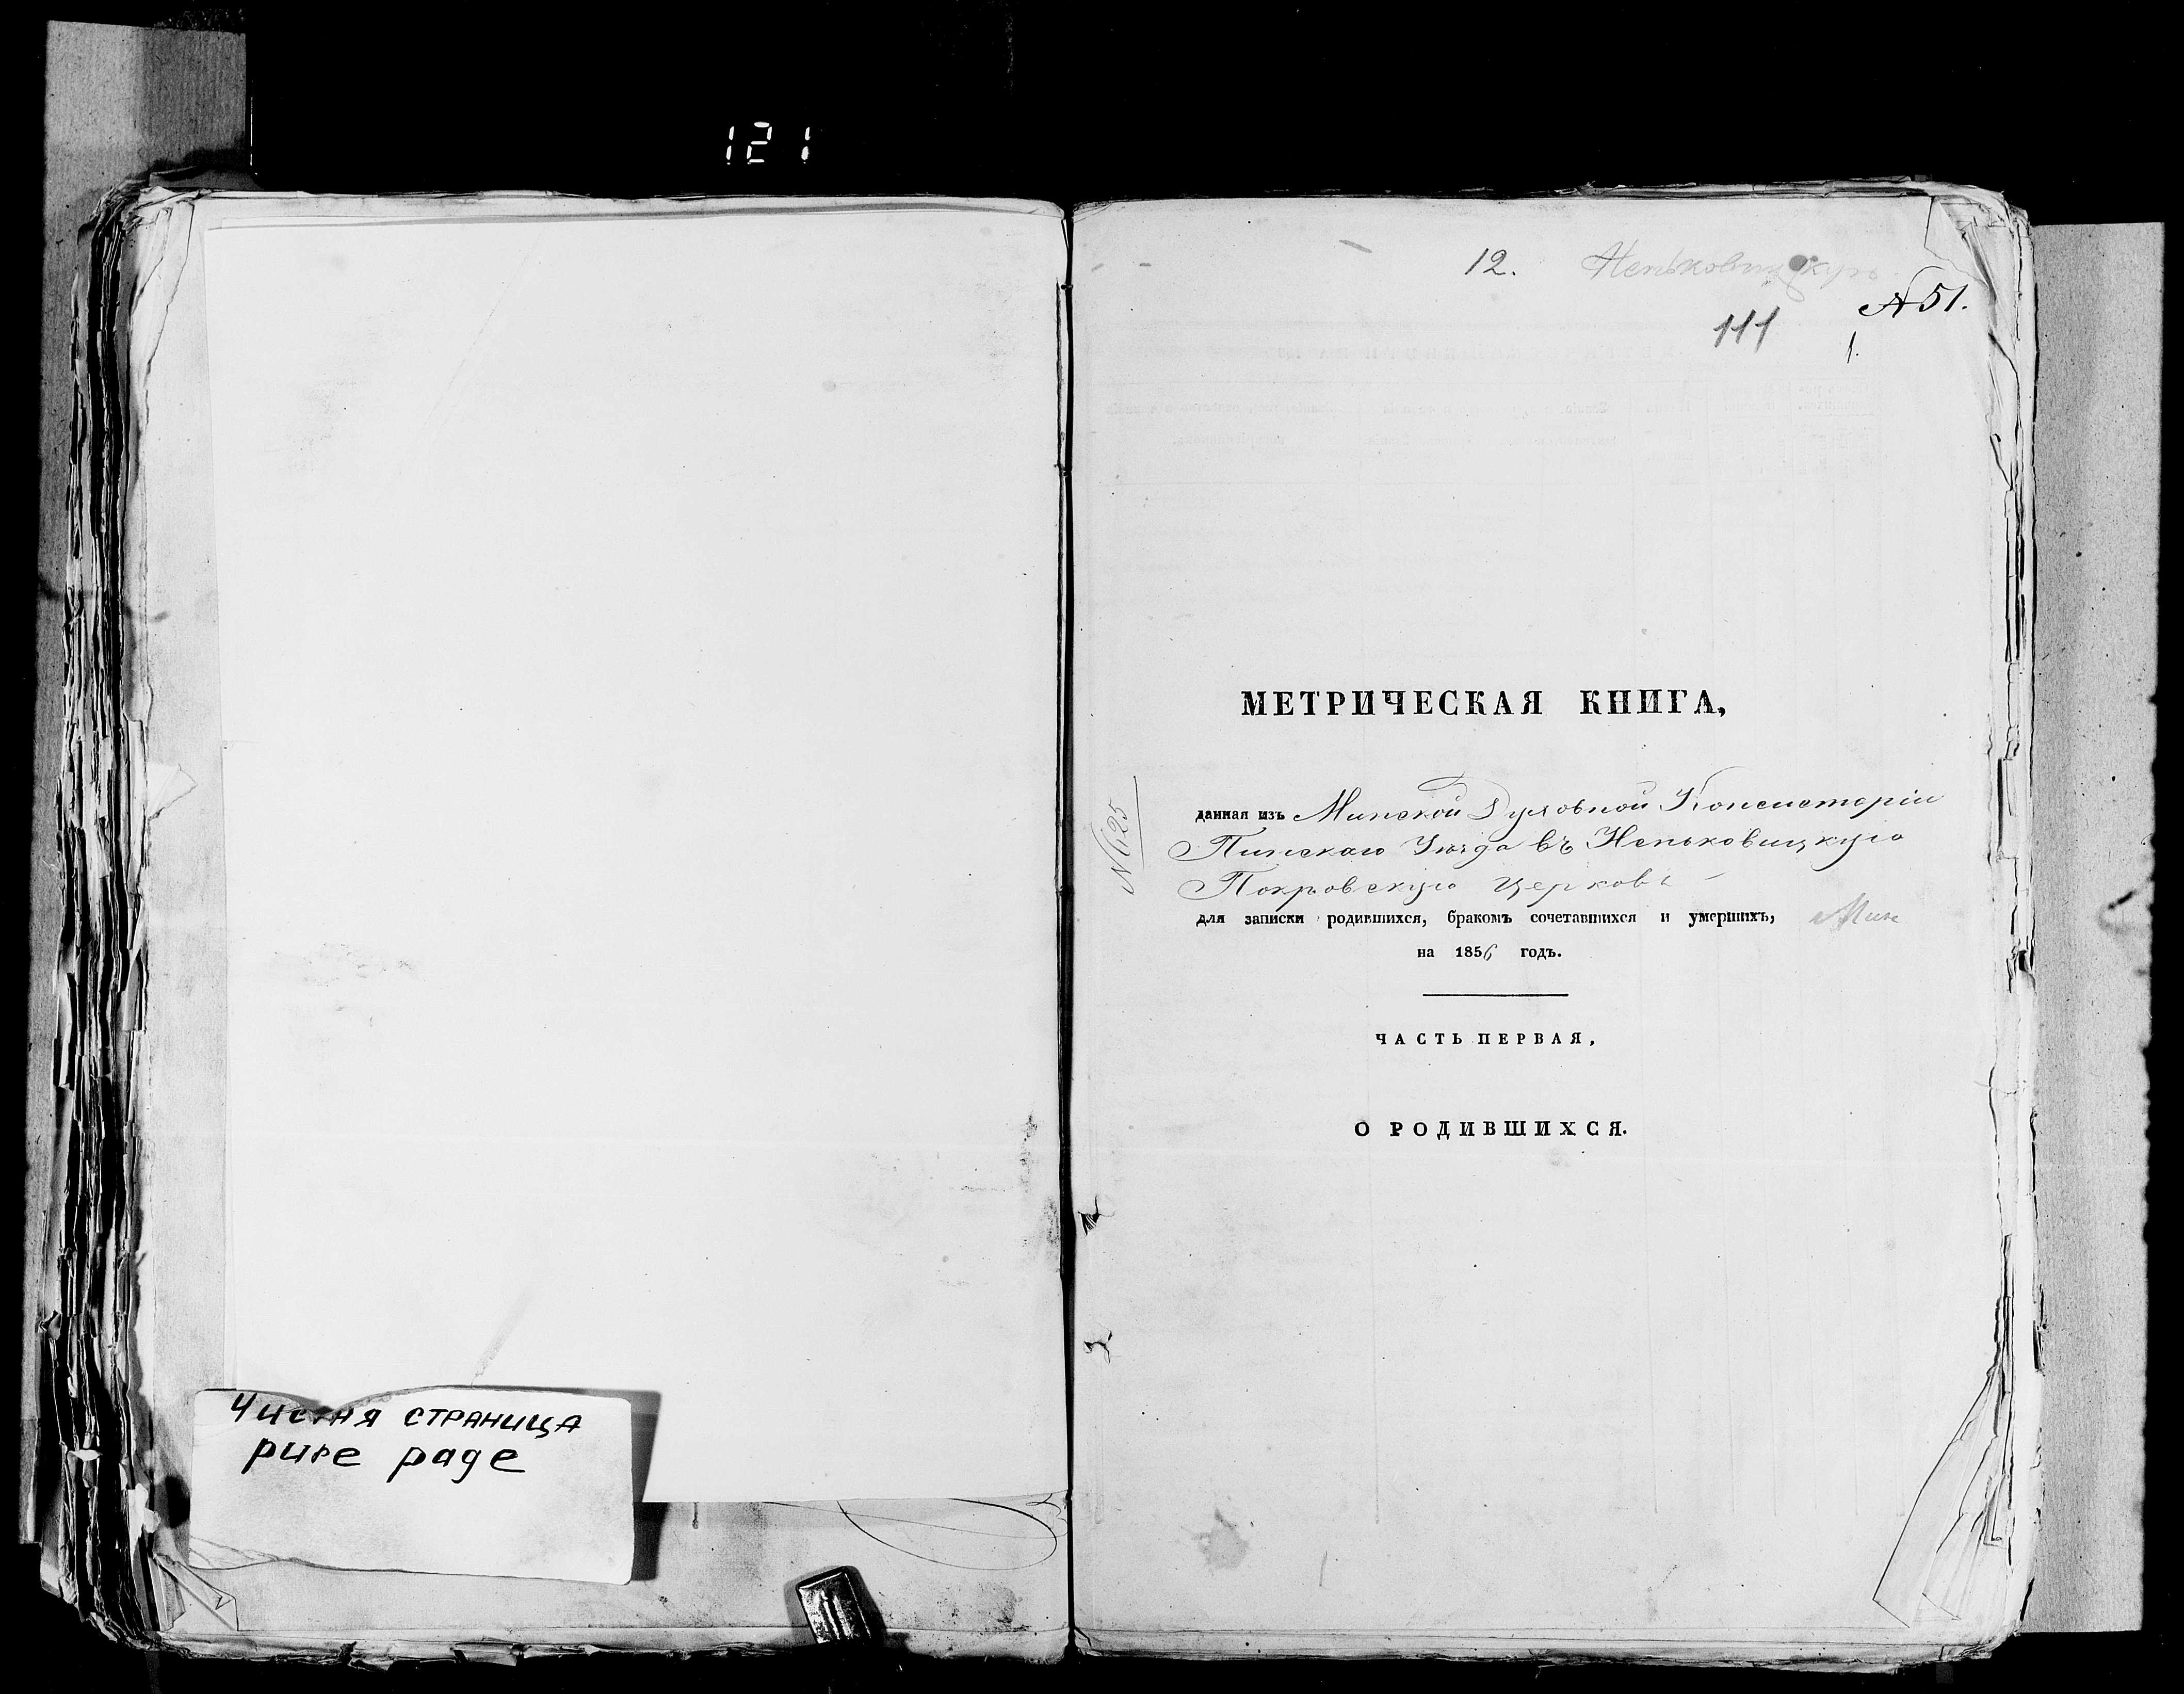 121
Чистая страница
pure page
12. Неньковицкую
№ 51.
111
1.
МЕТРИЧЕСКАЯ КНИГА,
данная изъ Минской Духовной Консисторіи
Пинскаго Уѣзда въ Неньковицкую
Покровскую церковь
для записки родившихся, бракомъ сочетавшихся и умершихъ,
на 1856 годъ.
ЧАСТЬ ПЕРВАЯ,
О РОДИВШИХСЯ.